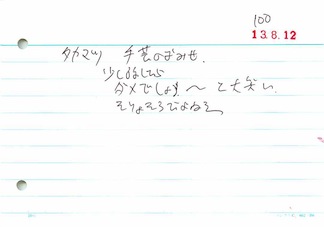 100
13.8.12
タカマツ 手芸のぞみせ.
少し
ダメでしょ! 〜 と大笑い
そりょそうでよねぇ